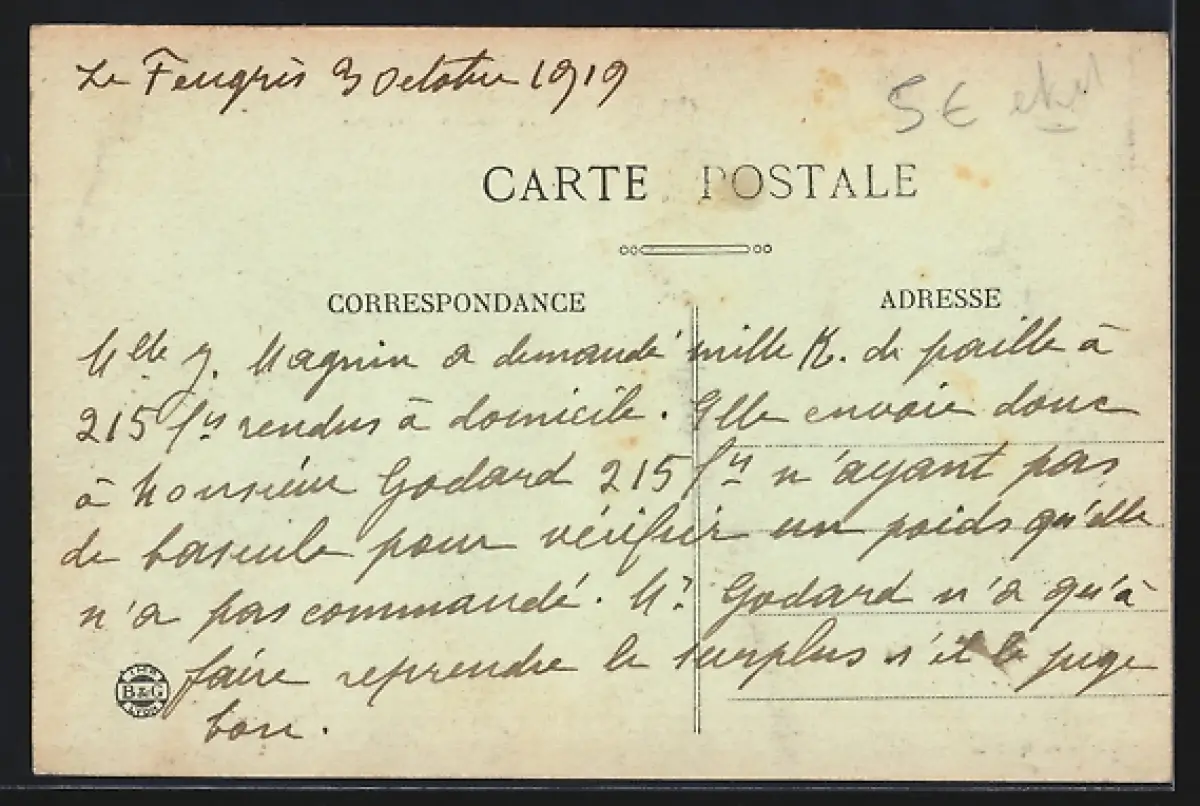 Le Feugrès 3 Octobre 1919
5€
CARTE POSTALE
CORRESPONDANCE
ADRESSE
Mlle J. Magnin a demandé mille K. de paille à
215 frs rendus à domicile. Elle envoie donc
à Monsieur Godard 215 frs n'ayant pas
de bascule pour vérifier un poids qu'elle
n'a pas commandé. Mr Godard n'a qu'à
faire reprendre le surplus s'il le juge
bon.
B&G
LYON